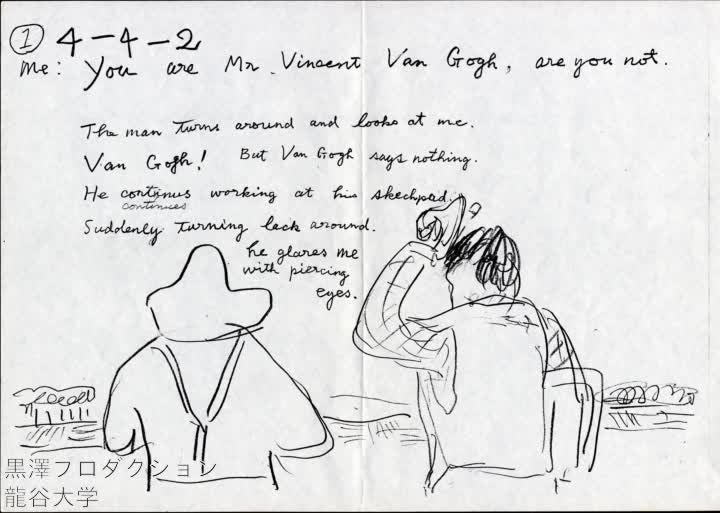 ① 4-4-2
Me: You are Mr. Vincent Van Gogh, are you not.
The man turns around and looks at me.
Van Gogh! But Van Gogh says nothing.
He continus working at his skechpad.
continues
Suddenly turning back around.
he glares me
with piercing
eyes.
黒澤プロダクション
龍谷大学